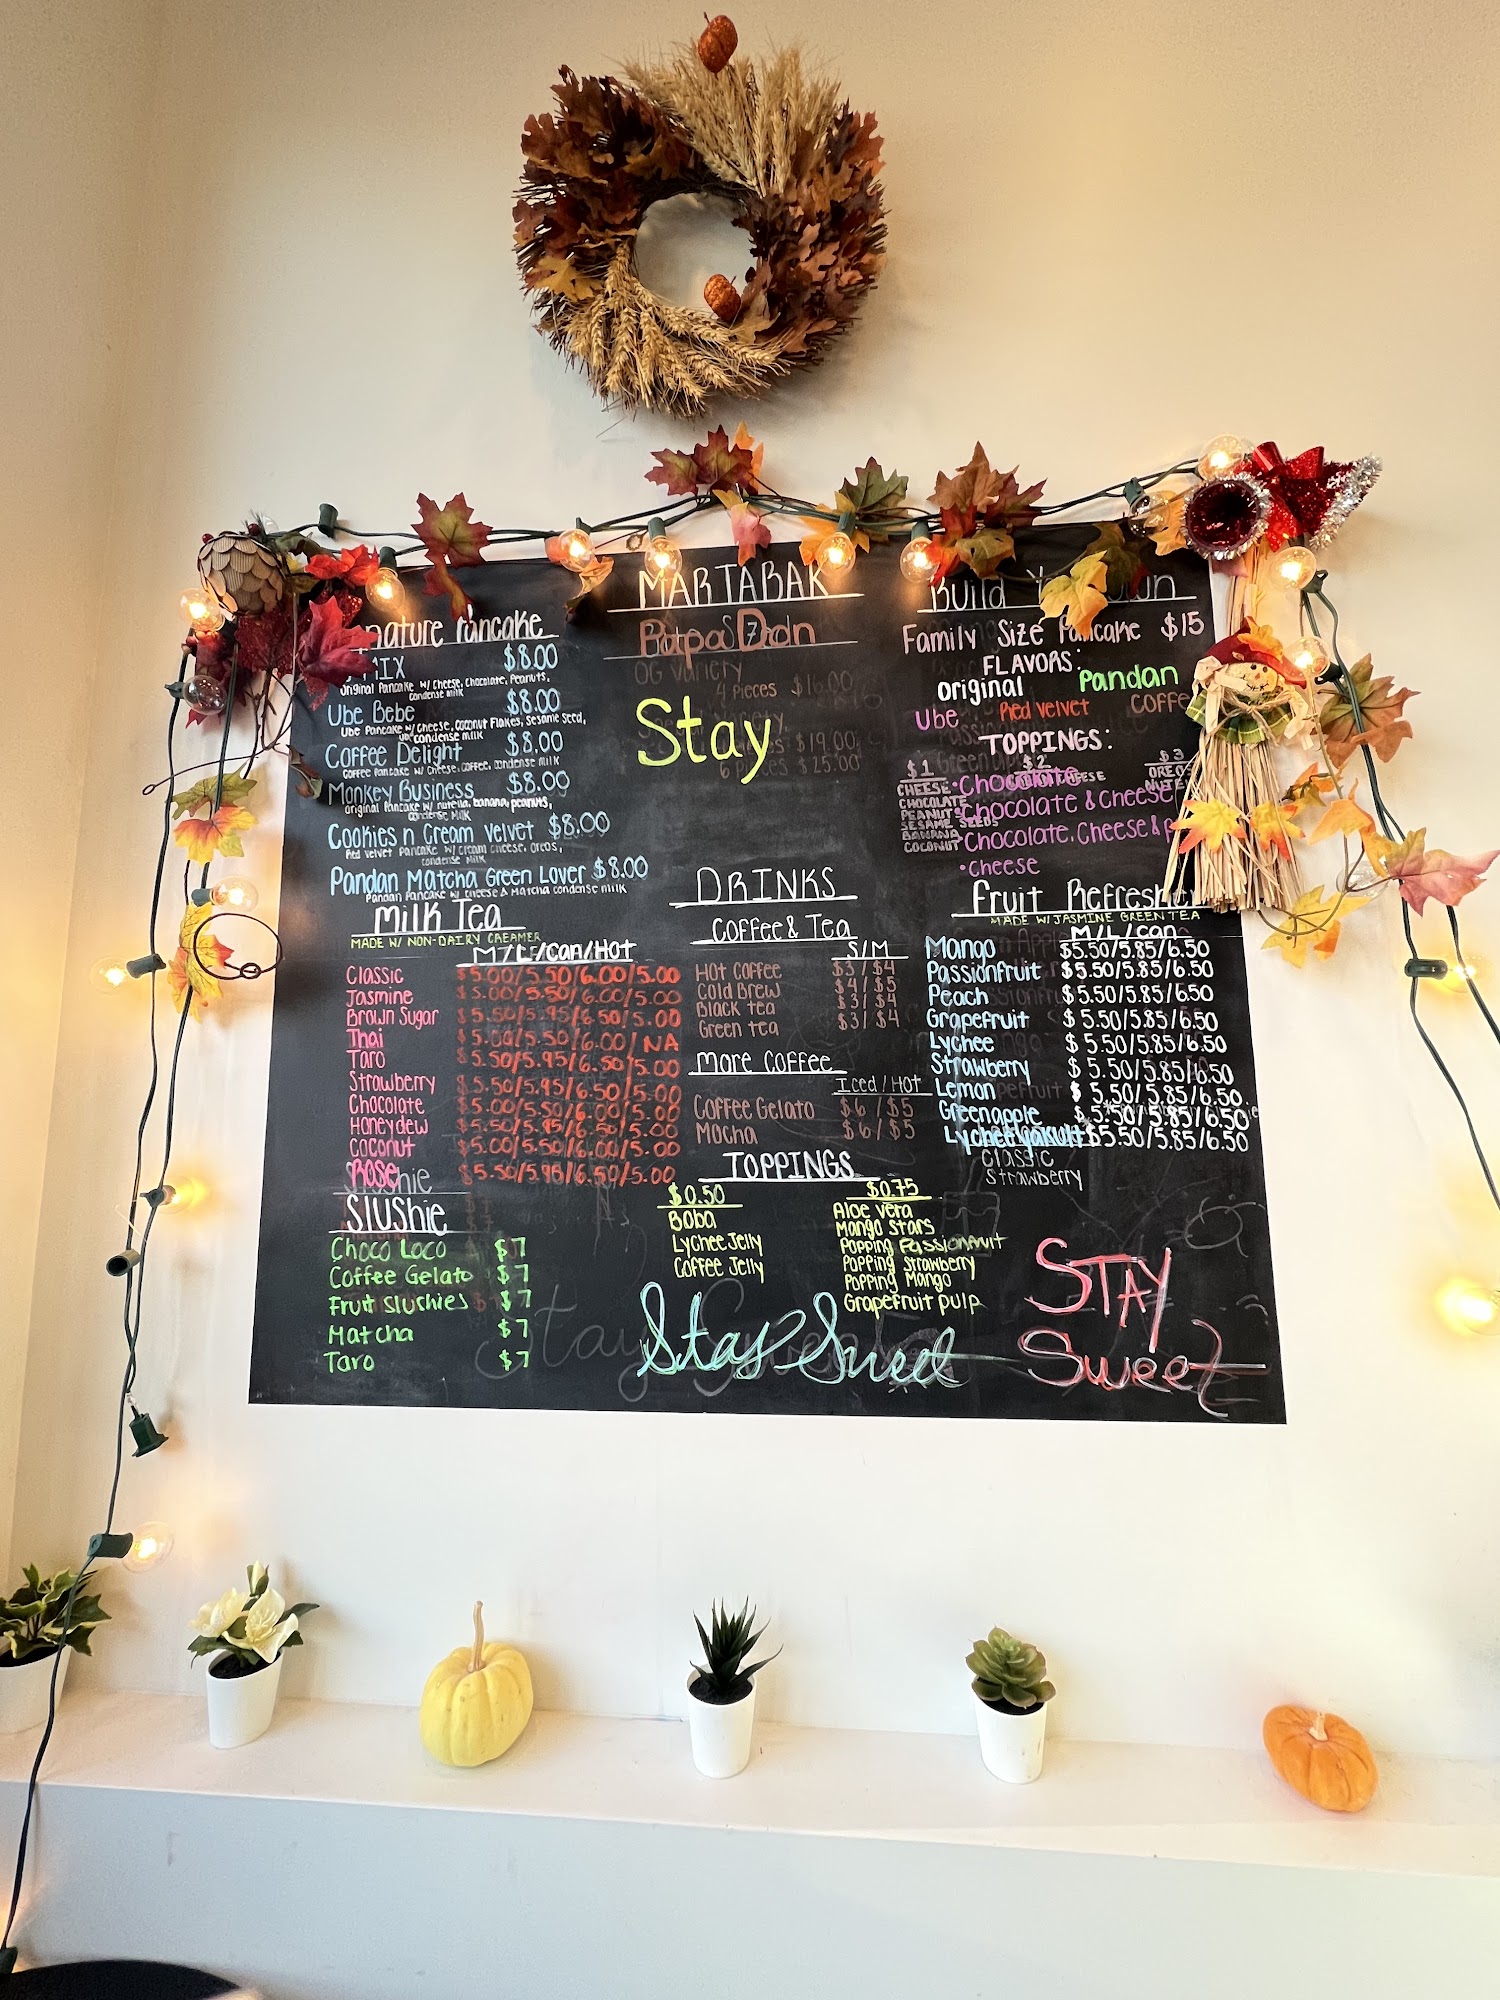 nature Pancake
MIX $8.00
Original Pancake w/ Cheese, Chocolate, Peanuts,
condense milk
Ube Bebe $8.00
Ube Pancake w/ cheese, coconut flakes, sesame seed,
ube condense milk
Coffee Delight $8.00
Coffee Pancake w/ cheese, coffee, condense milk
Monkey Business $8.00
original Pancake w/ nutella, banana, peanuts,
condense milk
Cookies n Cream Velvet $8.00
Red velvet Pancake w/ cream cheese, oreos,
condense milk
Pandan Matcha Green Lover $8.00
Pandan Pancake w/ cheese & Matcha condense milk
Milk Tea
MADE W/ NON-DAIRY CREAMER
M/L/Can/Hot
Classic $5.00/5.50/6.00/5.00
Jasmine $5.00/5.50/6.00/5.00
Brown Sugar $5.50/5.95/6.50/5.00
Thai $5.00/5.50/6.00/NA
Taro $5.50/5.95/6.50/5.00
Strawberry $5.50/5.95/6.50/5.00
Chocolate $5.00/5.50/6.00/5.00
Honeydew $5.50/5.95/6.50/5.00
Coconut $5.00/5.50/6.00/5.00
Rose $5.50/5.95/6.50/5.00
Slushie
Choco Loco $7
Coffee Gelato $7
Fruit Slushies $7
Matcha $7
Taro $7
MARTABAK
Papa Dan
OG Variety
4 Pieces $16.00
$19.00
6 pieces $25.00
Stay
DRINKS
Coffee & Tea
S/M
Hot Coffee $3/$4
Cold Brew $4/$5
Black tea $3/$4
Green tea $3/$4
More Coffee
Iced/Hot
Coffee Gelato $6/$5
Mocha $6/$5
TOPPINGS
$0.50
Boba
Lychee Jelly
Coffee Jelly
$0.75
Aloe vera
Mango Stars
Popping Passionfruit
Popping Strawberry
Popping Mango
Grapefruit pulp
Stay Sweet
Build
Family Size Pancake $15
FLAVORS:
Original Pandan
Ube Red Velvet COFFE
TOPPINGS:
$1 $2 $3
CHEESE
CHOCOLATE
PEANUTS
SESAME SEEDS
BANANA
COCONUT
OREO
• Chocolate
• Chocolate & Cheese
• Chocolate, Cheese & P
• Cheese
Fruit Refresher
MADE W/ JASMINE GREEN TEA
M/L/Can
Mango $5.50/5.85/6.50
Passionfruit $5.50/5.85/6.50
Peach $5.50/5.85/6.50
Grapefruit $5.50/5.85/6.50
Lychee $5.50/5.85/6.50
Strawberry $5.50/5.85/6.50
Lemon $5.50/5.85/6.50
Green apple $5.50/5.85/6.50
Lychee yakult $5.50/5.85/6.50
Classic
Strawberry
STAY
Sweet